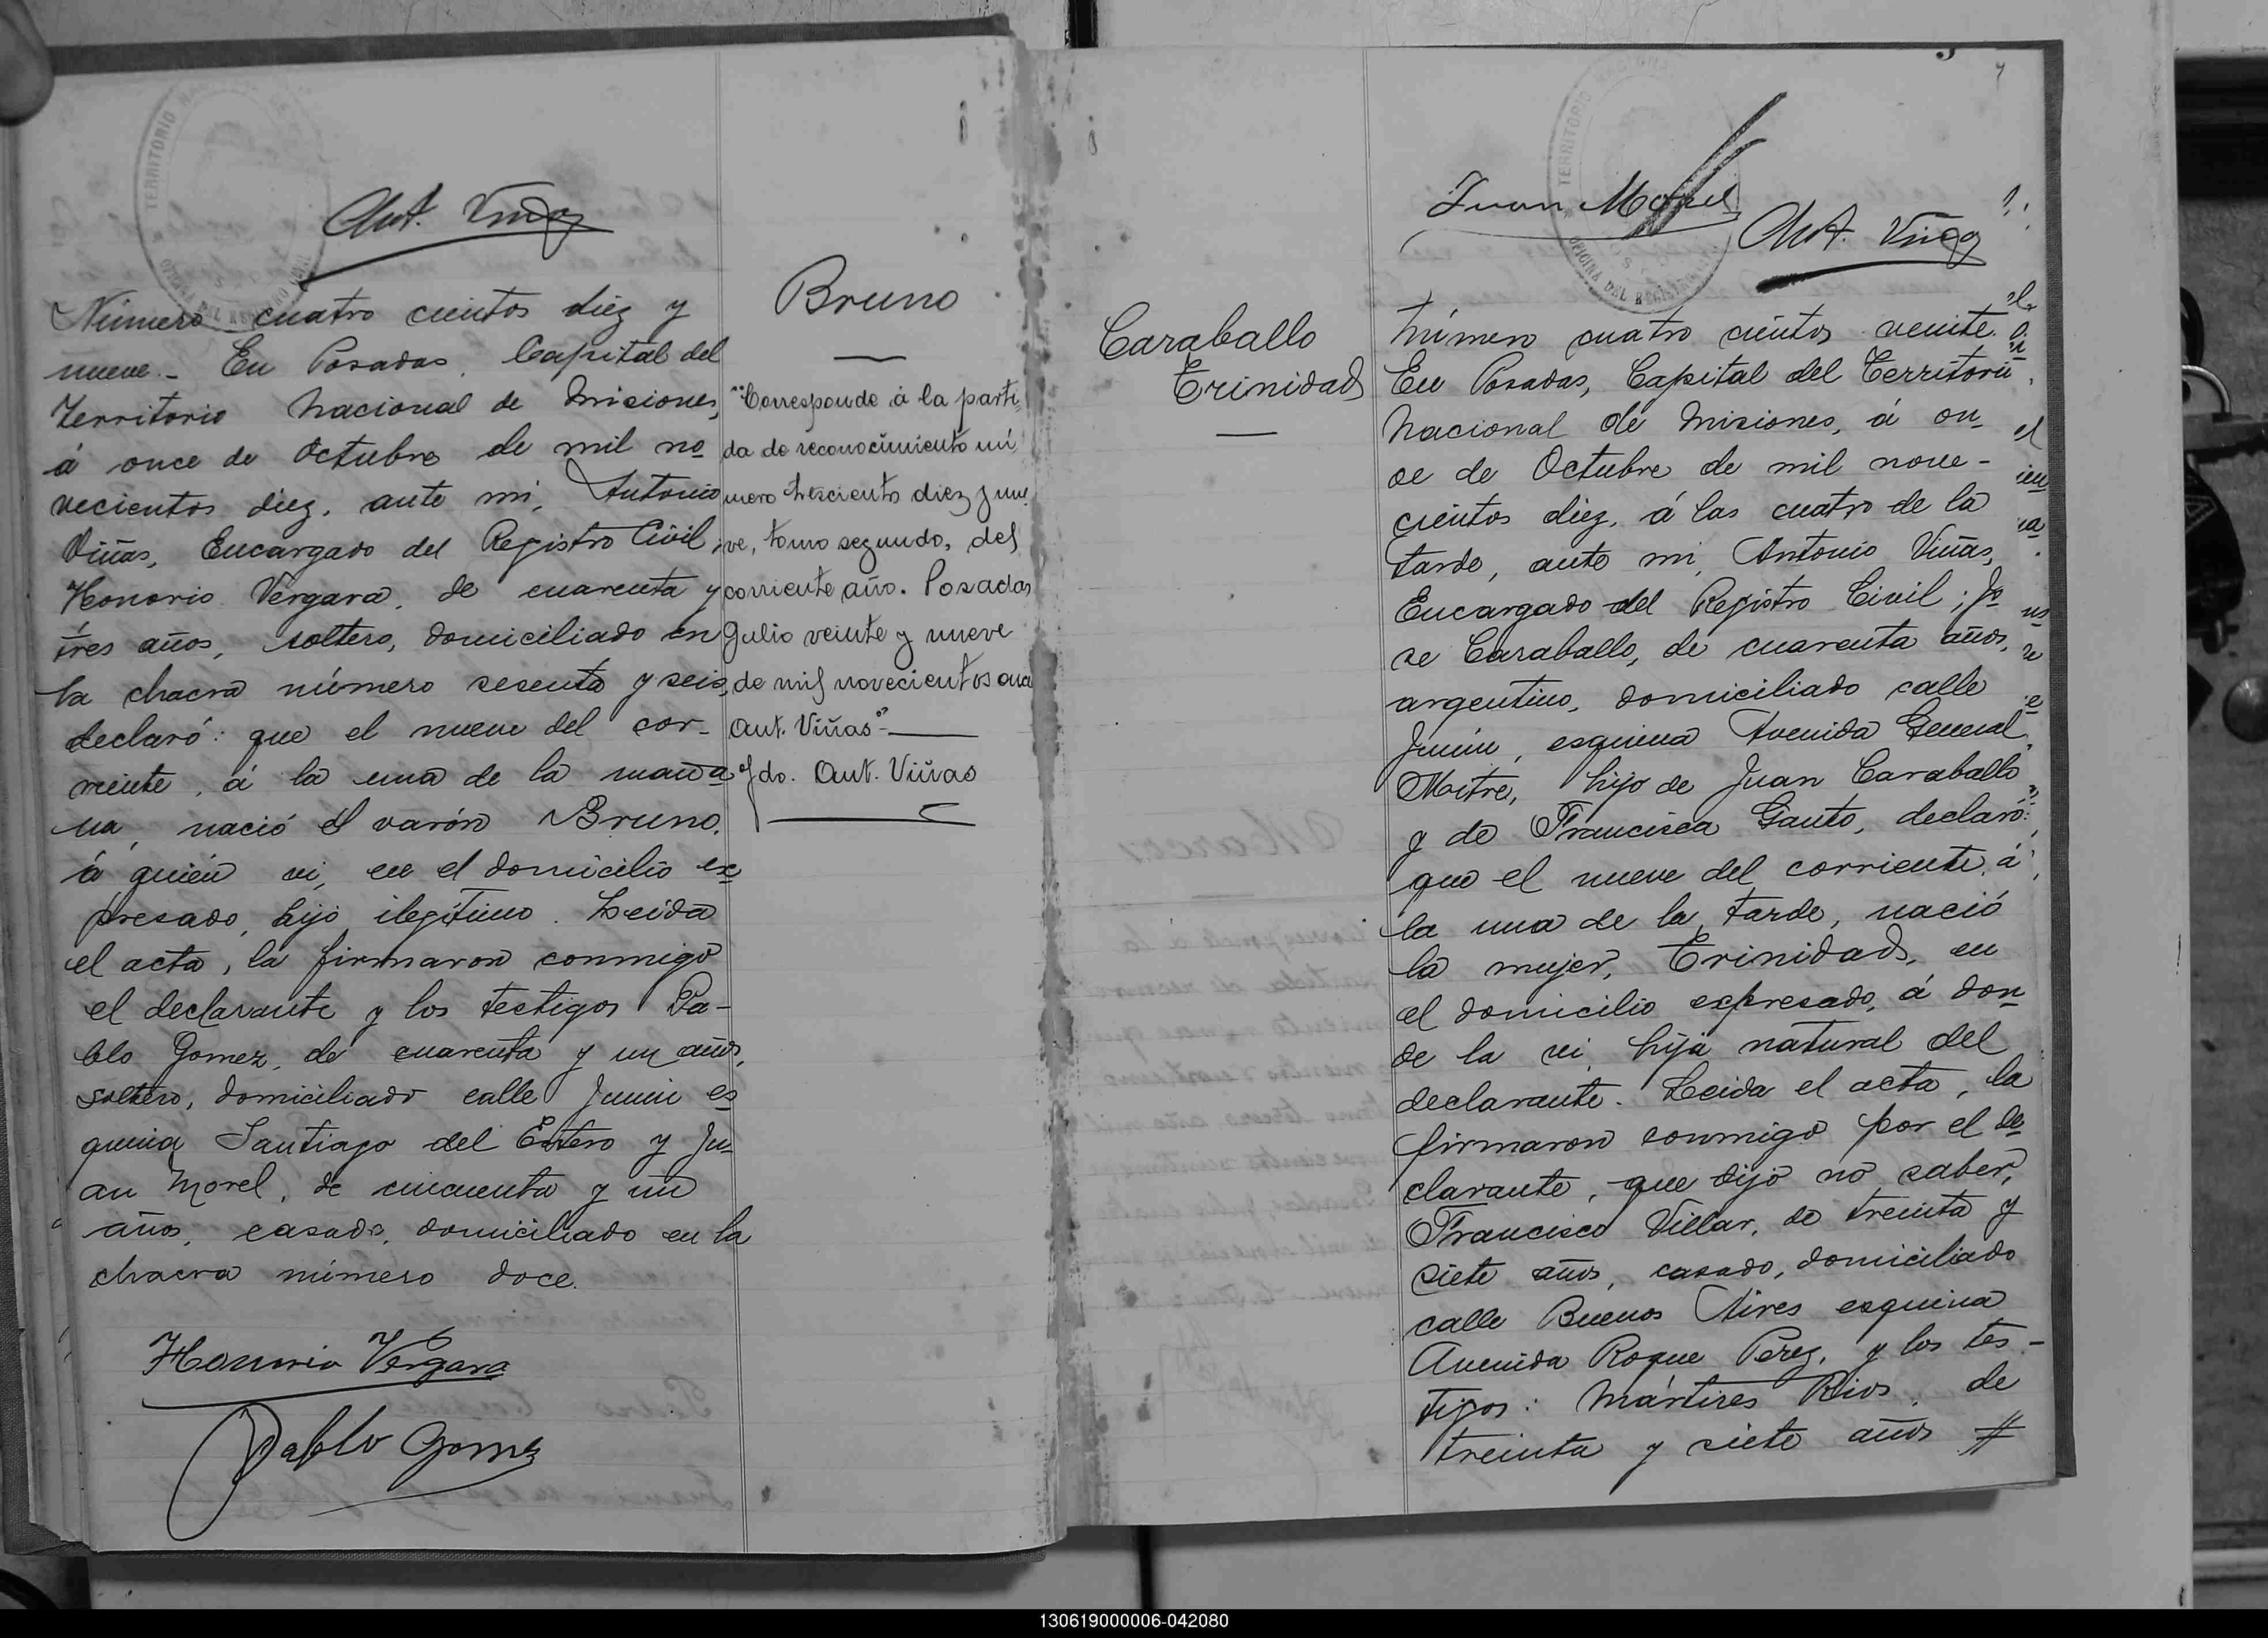 Ant. Viñas
Número cuatro cientos diez y
nueve.- En Posadas, Capital del
Territorio Nacional de Misiones,
á once de Octubre de mil no-
vecientos diez, ante mi, Antonio
Viñas, Encargado del Registro Civil,
Honorio Vergara, de cuarenta y
tres años, soltero, domiciliado en
la chacra número sesenta y seis,
declaró: que el nueve del cor-
riente, á la una de la maña-
na, nació el varón Bruno,
á quién vi, en el domicilio ex-
presado, hijo ilegítimo. Leida
el acta, la firmaron conmigo
el declarante y los testigos Pa-
blo Gomez, de cuarenta y un años,
soltero, domiciliado calle Junin es-
quina Santiago del Estero y Ju-
an Morel, de cincuenta y un
años, casado, domiciliado en la
chacra número doce.
Honorio Vergara
Pablo Gomez
Bruno
"Corresponde á la parti-
da de reconocimiento nú-
mero trescientos diez y nue-
ve, tomo segundo, del
corriente año. Posadas
Julio veinte y nueve
de mil novecientos once
Ant. Viñas"
fdo. Ant. Viñas
Juan Morel
Ant. Viñas
Caraballo
Trinidad
Número cuatro cientos veinte.
En Posadas, Capital del Territorio
Nacional de Misiones, á on-
ce de Octubre de mil nove-
cientos diez, á las cuatro de la
tarde, ante mi, Antonio Viñas,
Encargado del Registro Civil; Jo-
se Caraballo, de cuarenta años,
argentino, domiciliado calle
Junin, esquina Avenida General
Mitre, hijo de Juan Caraballo
y de Francisca Gauto, declaró:
que el nueve del corriente, á
la una de la tarde, nació
la mujer, Trinidad, en
el domicilio expresado, á don-
de la vi, hija natural del
declarante. Leida el acta, la
firmaron conmigo por el de-
clarante, que dijo no saber,
Francisco Villar, de treinta y
siete años, casado, domiciliado
calle Buenos Aires esquina
Avenida Roque Perez, y los tes-
tigos: Mártires Rios, de
treinta y siete años
130619000006-042080